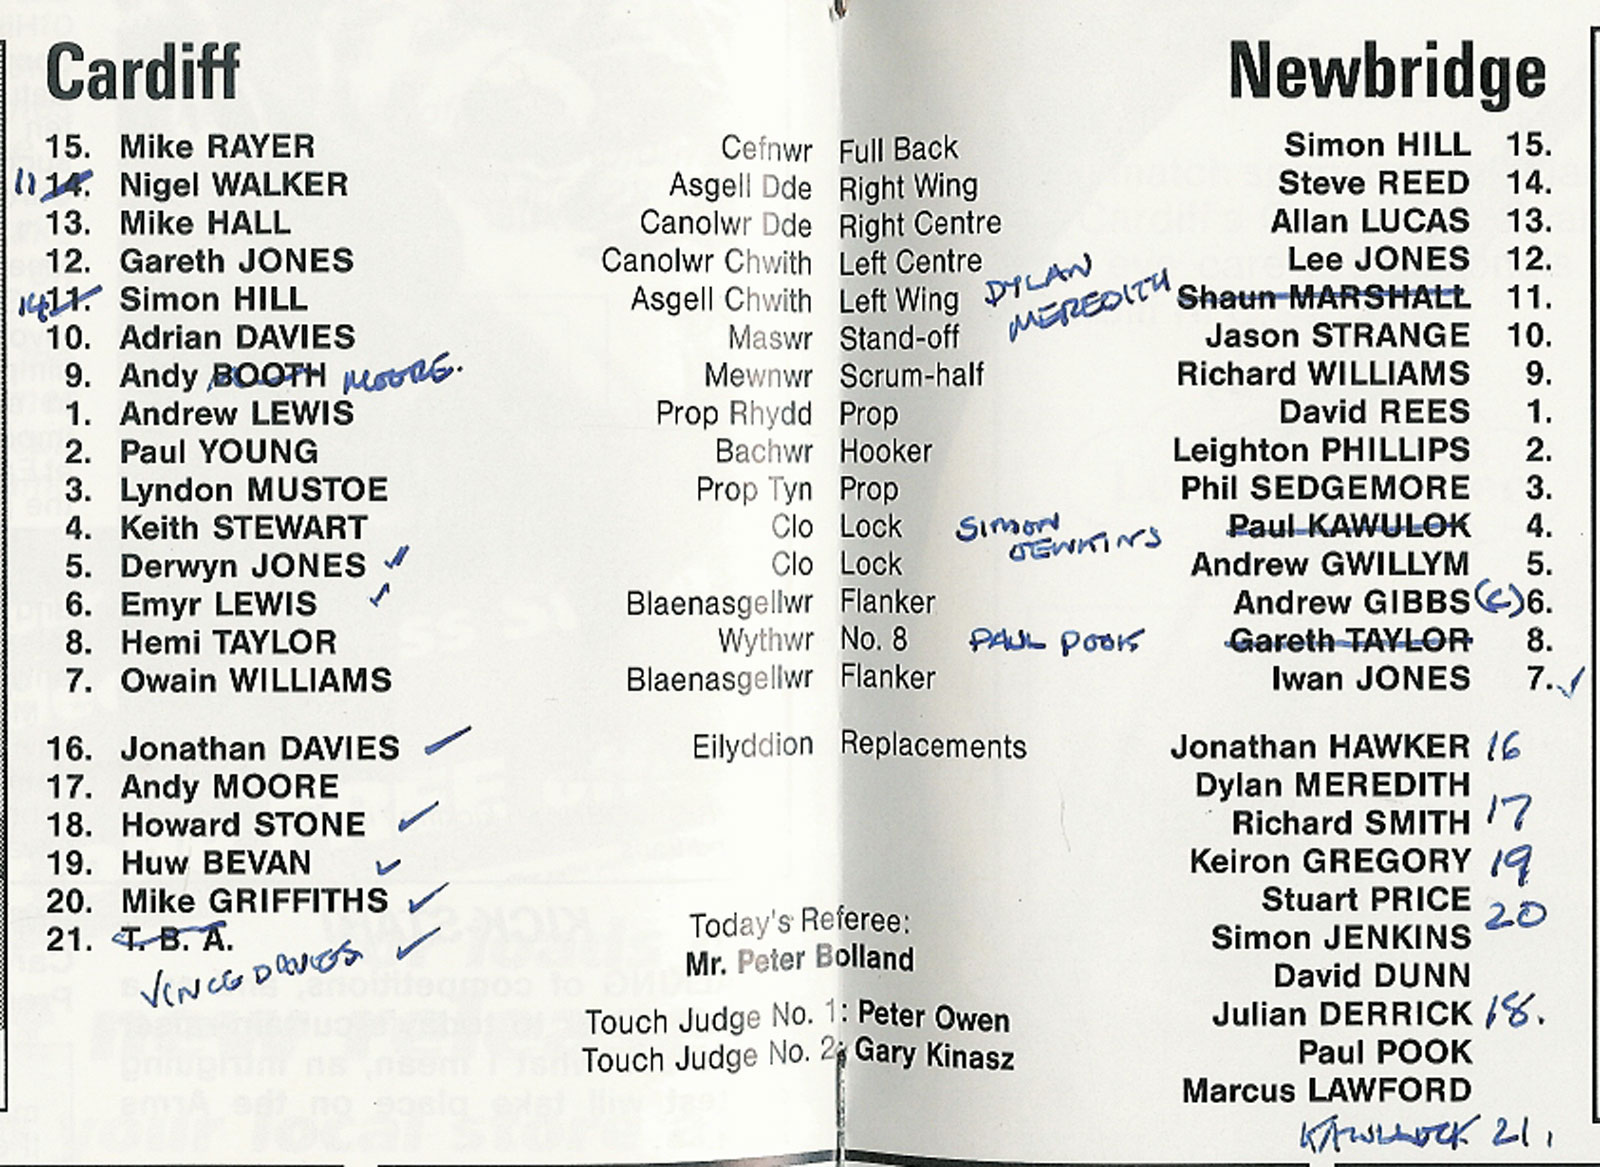 Cardiff Newbridge
15. Mike RAYER Cefnwr Full Back Simon HILL 15.
11 14. Nigel WALKER Asgell Dde Right Wing Steve REED 14.
13. Mike HALL Canolwr Dde Right Centre Allan LUCAS 13.
12. Gareth JONES Canolwr Chwith Left Centre Lee JONES 12.
14 11. Simon HILL Asgell Chwith Left Wing DYLAN MEREDITH Shaun MARSHALL 11.
10. Adrian DAVIES Maswr Stand-off Jason STRANGE 10.
9. Andy BOOTH MOORE. Mewnwr Scrum-half Richard WILLIAMS 9.
1. Andrew LEWIS Prop Rhydd Prop David REES 1.
2. Paul YOUNG Bachwr Hooker Leighton PHILLIPS 2.
3. Lyndon MUSTOE Prop Tyn Prop Phil SEDGEMORE 3.
4. Keith STEWART Clo Lock SIMON JENKINS Paul KAWULOK 4.
5. Derwyn JONES Clo Lock Andrew GWILLYM 5.
6. Emyr LEWIS Blaenasgellwr Flanker Andrew GIBBS (C) 6.
8. Hemi TAYLOR Wythwr No. 8 PAUL POOK Gareth TAYLOR 8.
7. Owain WILLIAMS Blaenasgellwr Flanker Iwan JONES 7.
16. Jonathan DAVIES Eilyddion Replacements Jonathan HAWKER 16
17. Andy MOORE Dylan MEREDITH
18. Howard STONE Richard SMITH 17
19. Huw BEVAN Keiron GREGORY 19
20. Mike GRIFFITHS Stuart PRICE 20
21. T. B. A. Simon JENKINS
VINCE DAVIES
Today's Referee:
Mr. Peter Bolland
David DUNN
Touch Judge No. 1: Peter Owen Julian DERRICK 18.
Touch Judge No. 2: Gary Kinasz Paul POOK
Marcus LAWFORD
KAWULOCK 21.